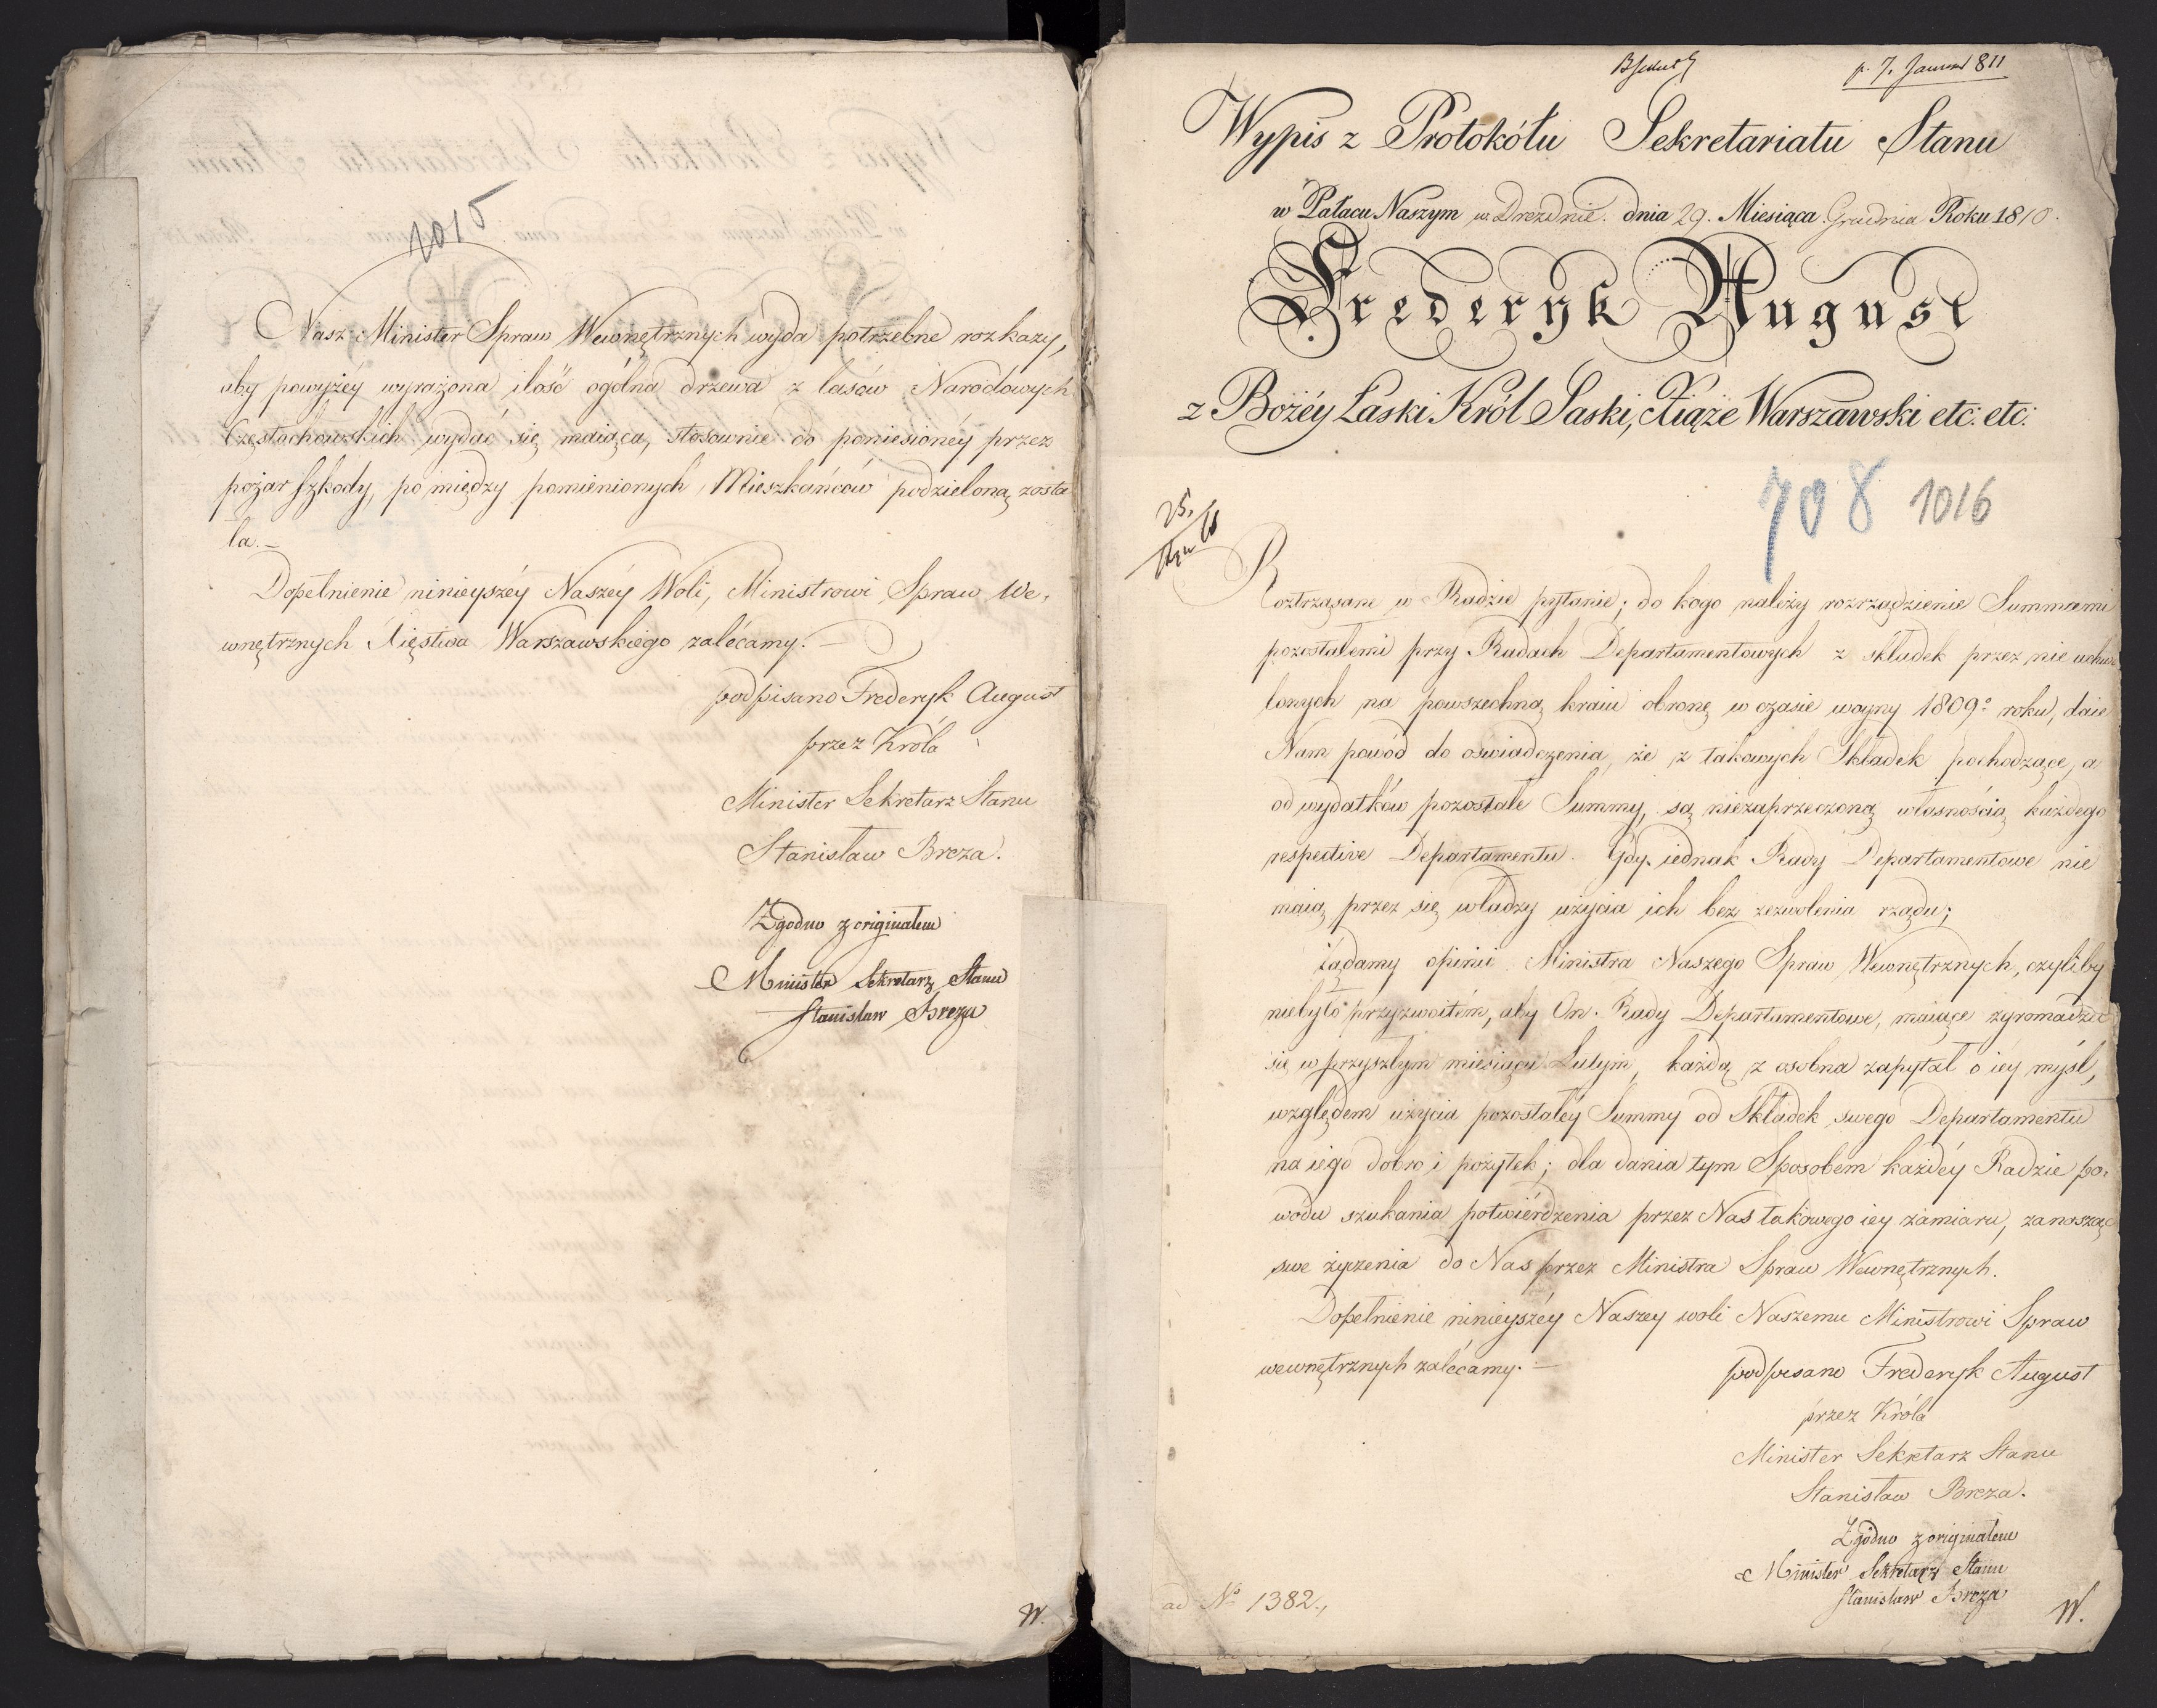 1015
Nasz Minister Spraw Wewnętrznych wyda potrzebne rozkazy,
aby powyżéy wyrażona ilość ogólna drzewa z lasów Narodowych
Częstochowskich wydać się maiąca, stosownie do poniesionéy przez
pożar szkody, po między pomienionych Mieszkańców podzieloną zosta
ła.—
Dopełnienie ninieyszéy Naszéy Woli, Ministrowi Spraw We,
wnętrznych Xięstwa Warszawskiego zalécamy.—
podpisano Frederyk August
przez Króla
Minister Sekretarz Stanu
Stanisław Breza.
Zgodno z originałem
Minister Sekretarz Stanu
Stanisław Breza
W.
p. 7. Januar 811
Wypis z Protokółu Sekretariatu Stanu
w Pałacu Naszym w Dreźdnie. dnia 29. Miesiąca Grudnia Roku 1810.
Frederyk August
z Bożéy Łaski Król Saski, Xiąże Warszawski etc: etc:
708 1016
25.
Roztrząsane w Radzie pytanie; do kogo należy rozrządzienie Summami
pozostałemi przy Radach Departamentowych z składek przez nie uchwa
lonych na powszechną kraiu obronę w czasie woyny 1809º roku, daie
Nam powód do oświadczenia, że z takowych Składek pochodzące, a
od wydatków pozostałe Summy, są niezaprzeczoną własnością każdego
respective Departamentu. Gdy iednak Rady Departamentowe nie
maią przez się władzy użycia ich bez zezwolenia rządu;
żądamy opinii Ministra Naszego Spraw Wewnętrznych, czyliby
niebyło przyzwoitém, aby On. Rady Departamentowe, maiące zgromadzić
się w przyszłym miesiącu Lutym, każdą z osobna zapytał o iéy myśl,
względem użycia pozostałéy Summy od Składek swego Departamentu
na iego dobro i pożytek; dla dania tym Sposobem każdéy Radzie po,
wodu szukania potwiérdzenia przez Nas takowego iey zamiaru, zanosząc
swe życzenia do Nas przez Ministra Spraw Wewnętrznych.
Dopełnienie ninieyszéy Naszey woli Naszemu Ministrowi Spraw
wewnętrznych zalécamy.—
podpisano Frederyk August
przez Króla
Minister Sekretarz Stanu
Stanisław Breza.
Zgodno z originałem
Minister Sekretarz Stanu
Stanisław Breza
ad Nº 1382.,
W.